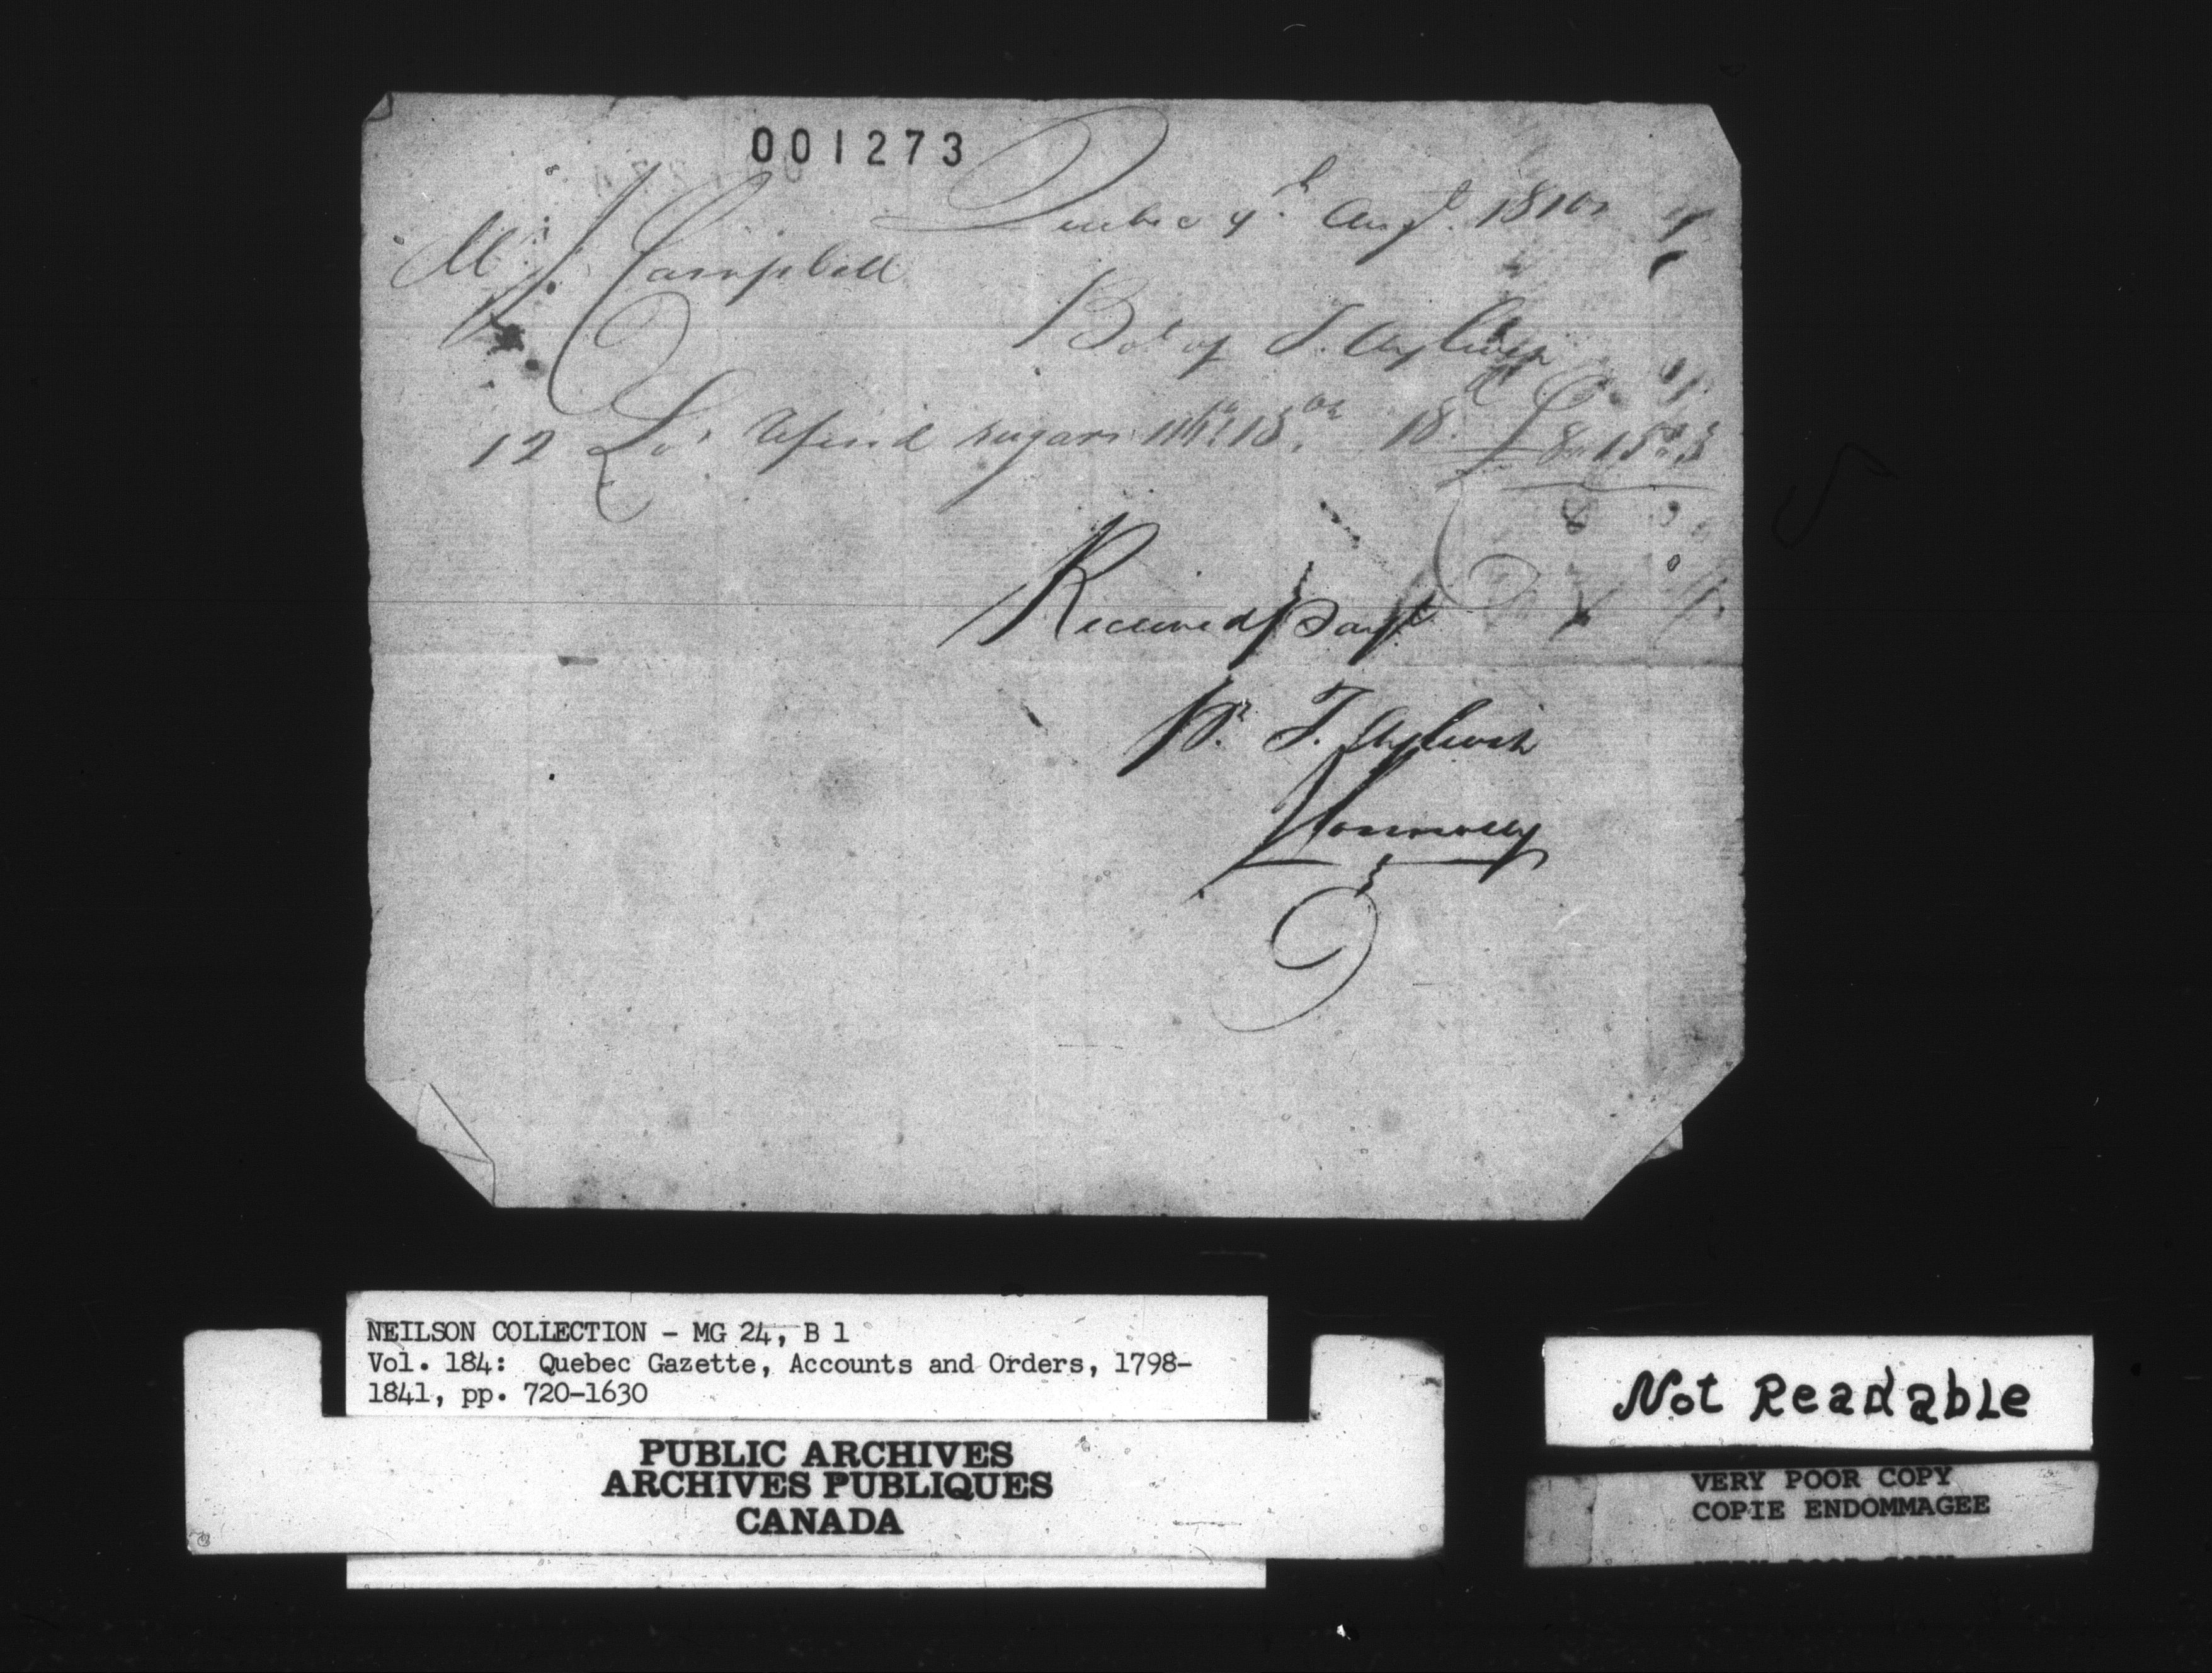 001273
Quebec 9th Augt. 1810
Mr. J Campbell
Bot of T. Aylwin
12 Lvs refind sugar 18d. £8"15"3
Received Payt
Pr. T. Aylwin
NEILSON COLLECTION - MG 24, B 1
Vol. 184: Quebec Gazette, Accounts and Orders, 1798-
1841, pp. 720-1630
PUBLIC ARCHIVES
ARCHIVES PUBLIQUES
CANADA
Not Readable
VERY POOR COPY
COPIE ENDOMMAGEE